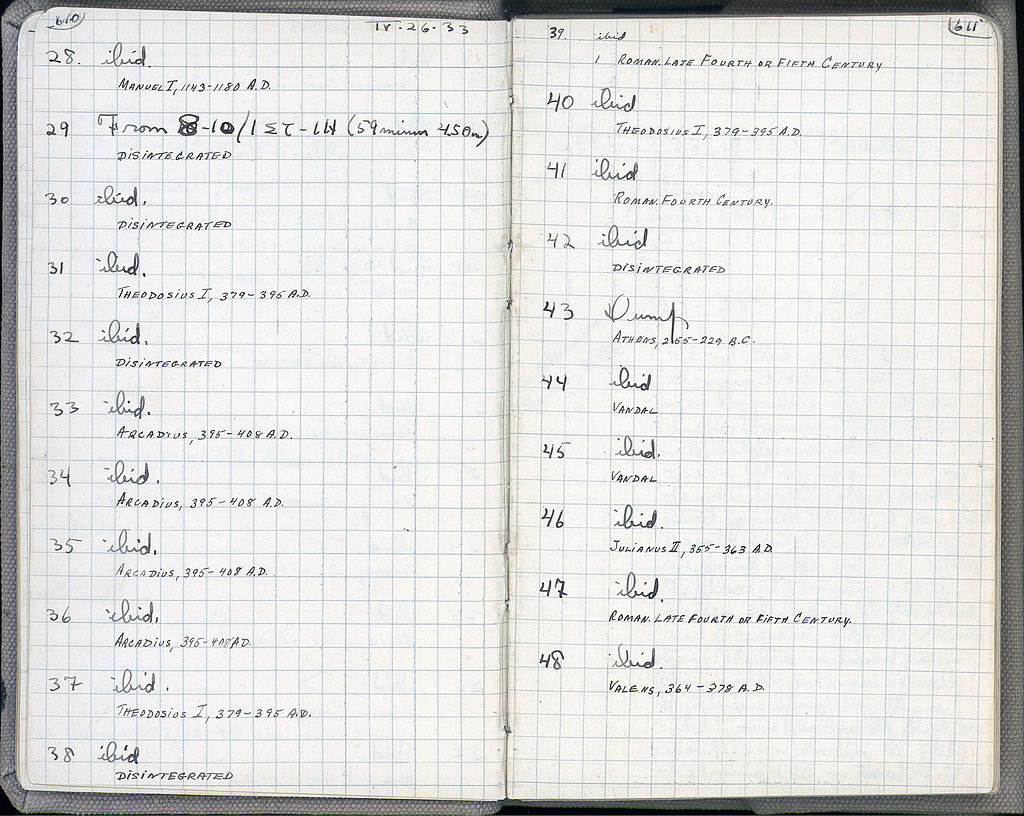 610
IV-26-33
28. ibid.
MANUEL I, 1143-1180 A.D.
29 From 8-10/1ΣΤ-ΙΗ (59 minus 4.50m)
DISINTEGRATED
30 ibid.
DISINTEGRATED
31 ibid.
THEODOSIUS I, 379-395 A.D.
32 ibid.
DISINTEGRATED
33 ibid.
ARCADIUS, 395-408 A.D.
34 ibid.
ARCADIUS, 395-408 A.D.
35 ibid.
ARCADIUS, 395-408 A.D.
36 ibid.
ARCADIUS, 395-408 A.D.
37 ibid.
THEODOSIUS I, 379-395 A.D.
38 ibid
DISINTEGRATED
611
39. ibid
1 ROMAN. LATE FOURTH OR FIFTH CENTURY
40 ibid
THEODOSIUS I, 379-395 A.D.
41 ibid
ROMAN. FOURTH CENTURY.
42 ibid
DISINTEGRATED
43 Dump
ATHENS, 255-229 B.C.
44 ibid
VANDAL
45 ibid.
VANDAL
46 ibid.
JULIANUS II, 355-363 A.D.
47 ibid.
ROMAN. LATE FOURTH OR FIFTH CENTURY.
48 ibid.
VALENS, 364-378 A.D.